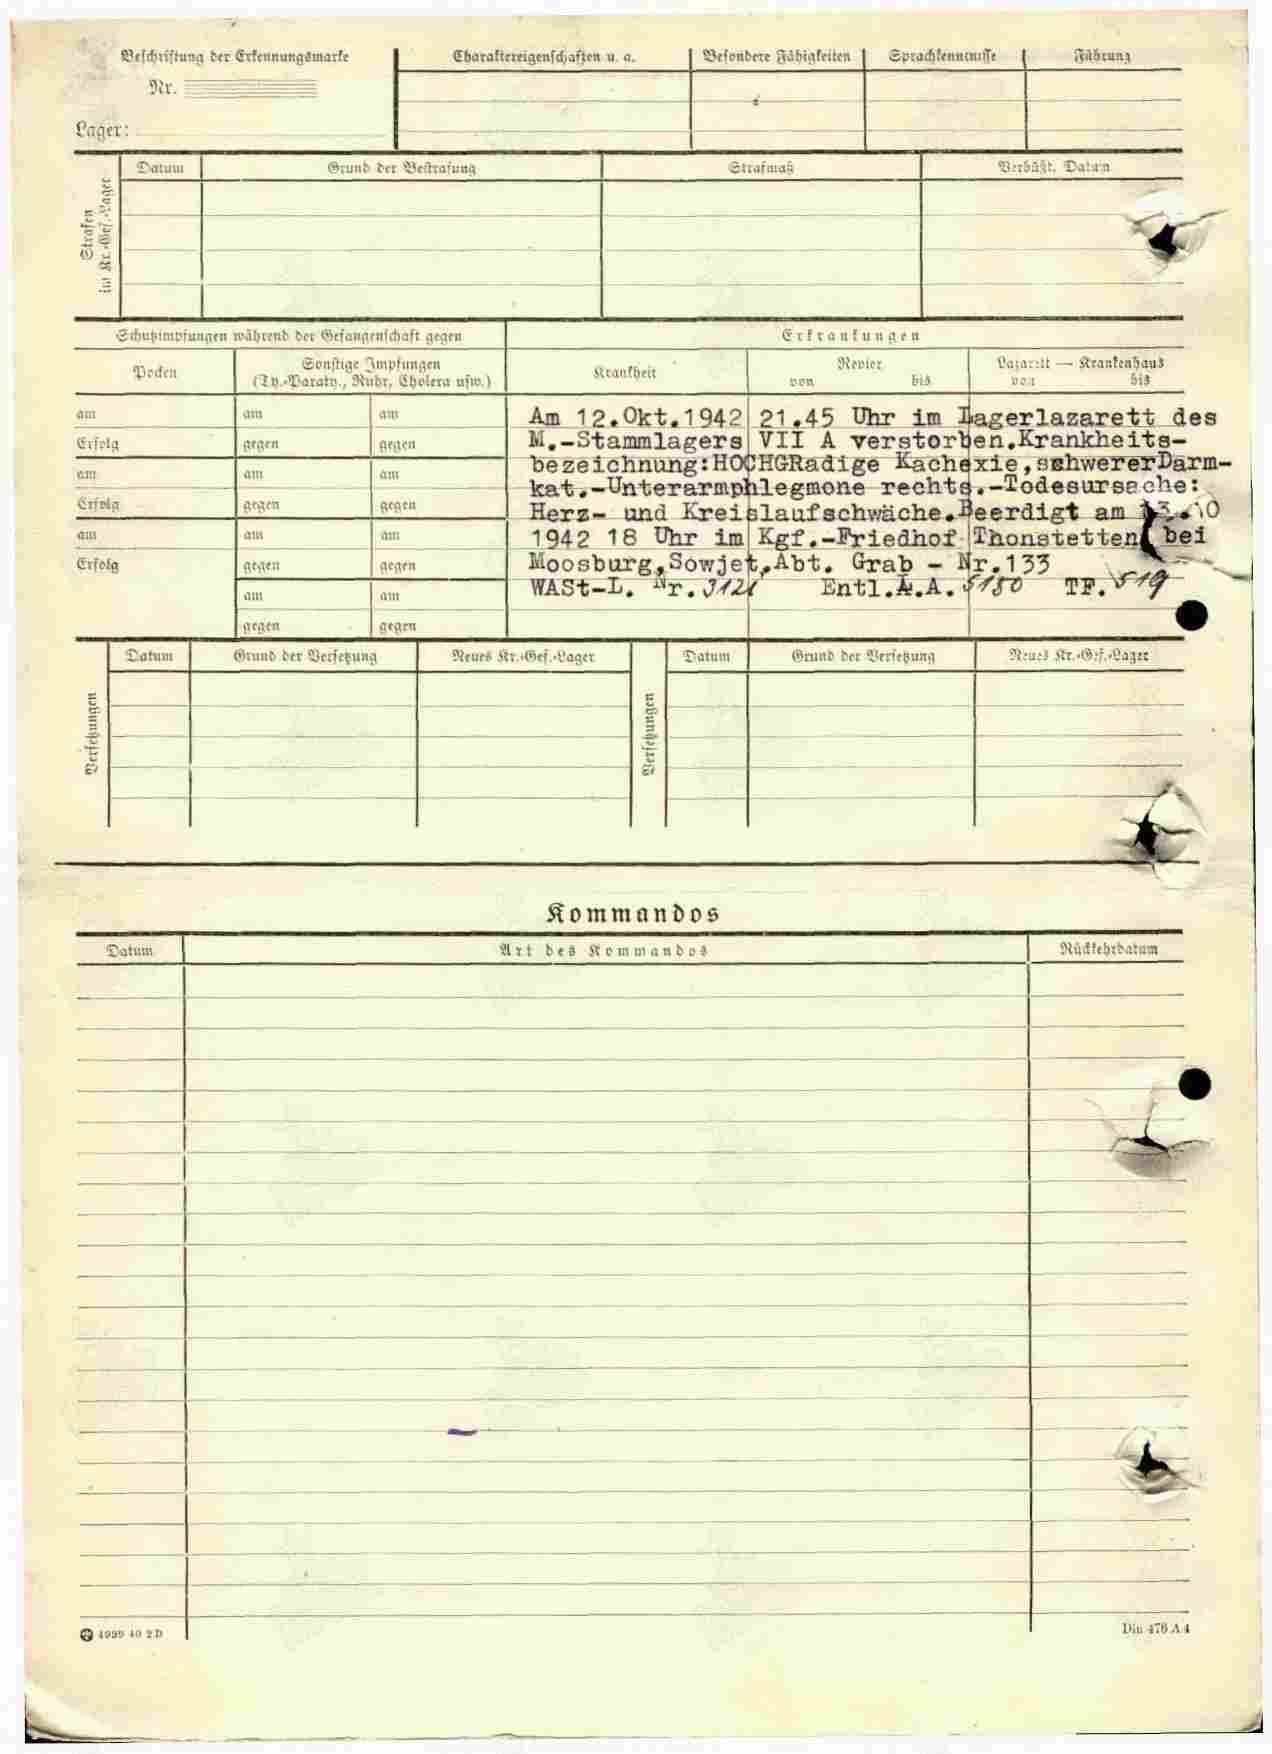 Beschriftung der Erkennungsmarke
Nr.
Lager:
Charaktereigenschaften u. a.
Besondere Fähigkeiten
Sprachkenntnisse
Führung
Strafen
im Kr.-Gef.-Lager
Datum
Grund der Bestrafung
Strafmaß
Verbüßt. Datum
Schutzimpfungen während der Gefangenschaft gegen
Erkrankungen
Pocken
Sonstige Impfungen
(Ty.-Paraty., Ruhr, Cholera usw.)
Krankheit
Revier
von bis
Lazarett — Krankenhaus
von bis
am am am
Erfolg gegen gegen
am am am
Erfolg gegen gegen
am am am
Erfolg gegen gegen
am am
gegen gegen
Am 12.Okt.1942 21.45 Uhr im Lagerlazarett des
M.-Stammlagers VII A verstorben.Krankheits-
bezeichnung:HOCHGRadige Kachexie,schwererDarm-
kat.-Unterarmphlegmone rechts.-Todesursache:
Herz- und Kreislaufschwäche.Beerdigt am 13.10
1942 18 Uhr im Kgf.-Friedhof Thonstetten bei
Moosburg,Sowjet.Abt. Grab - Nr.133
WASt-L. Nr. 3121 Entl.L.A. 5180 TF. 519
Versetzungen
Datum
Grund der Versetzung
Neues Kr.-Gef.-Lager
Versetzungen
Datum
Grund der Versetzung
Neues Kr.-Gef.-Lager
Kommandos
Datum
Art des Kommandos
Rückkehrdatum
4999 40 2D
Din 476 A4